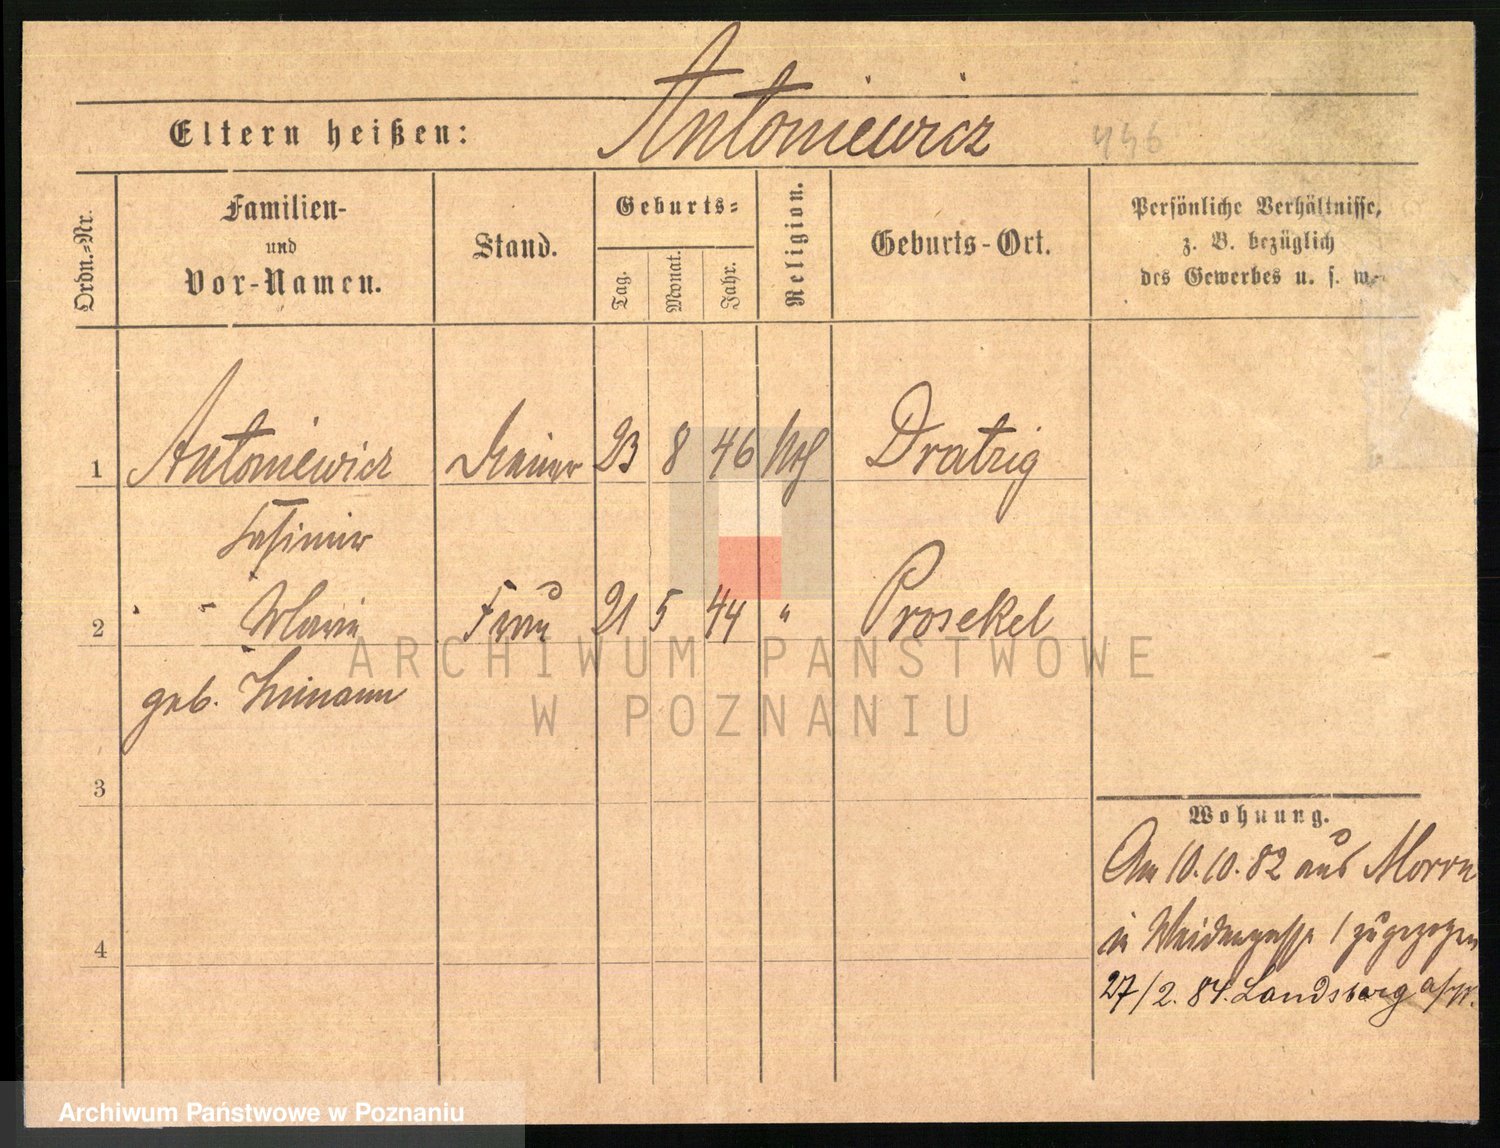 Antoniewicz
Eltern heißen:
446
Ordn.-Nr.
Familien-
und
Vor-Namen.
Stand.
Geburts-
Tag.
Monat.
Jahr.
Religion.
Geburts-Ort.
Persönliche Verhältnisse,
z. B. bezüglich
des Gewerbes u. s. w.
1 Antoniewicz 23 8 46 Dratzig
Casimir
2 " " Marie Frau 21 5 44 " Prosekel
geb.
3
4
Wohnung.
Am 10.10.82 aus Morrn
in Weidengasse 1 zugezogen
27/2. 84. Landsberg a/W.
ARCHIWUM PAŃSTWOWE
W POZNANIU
Archiwum Państwowe w Poznaniu